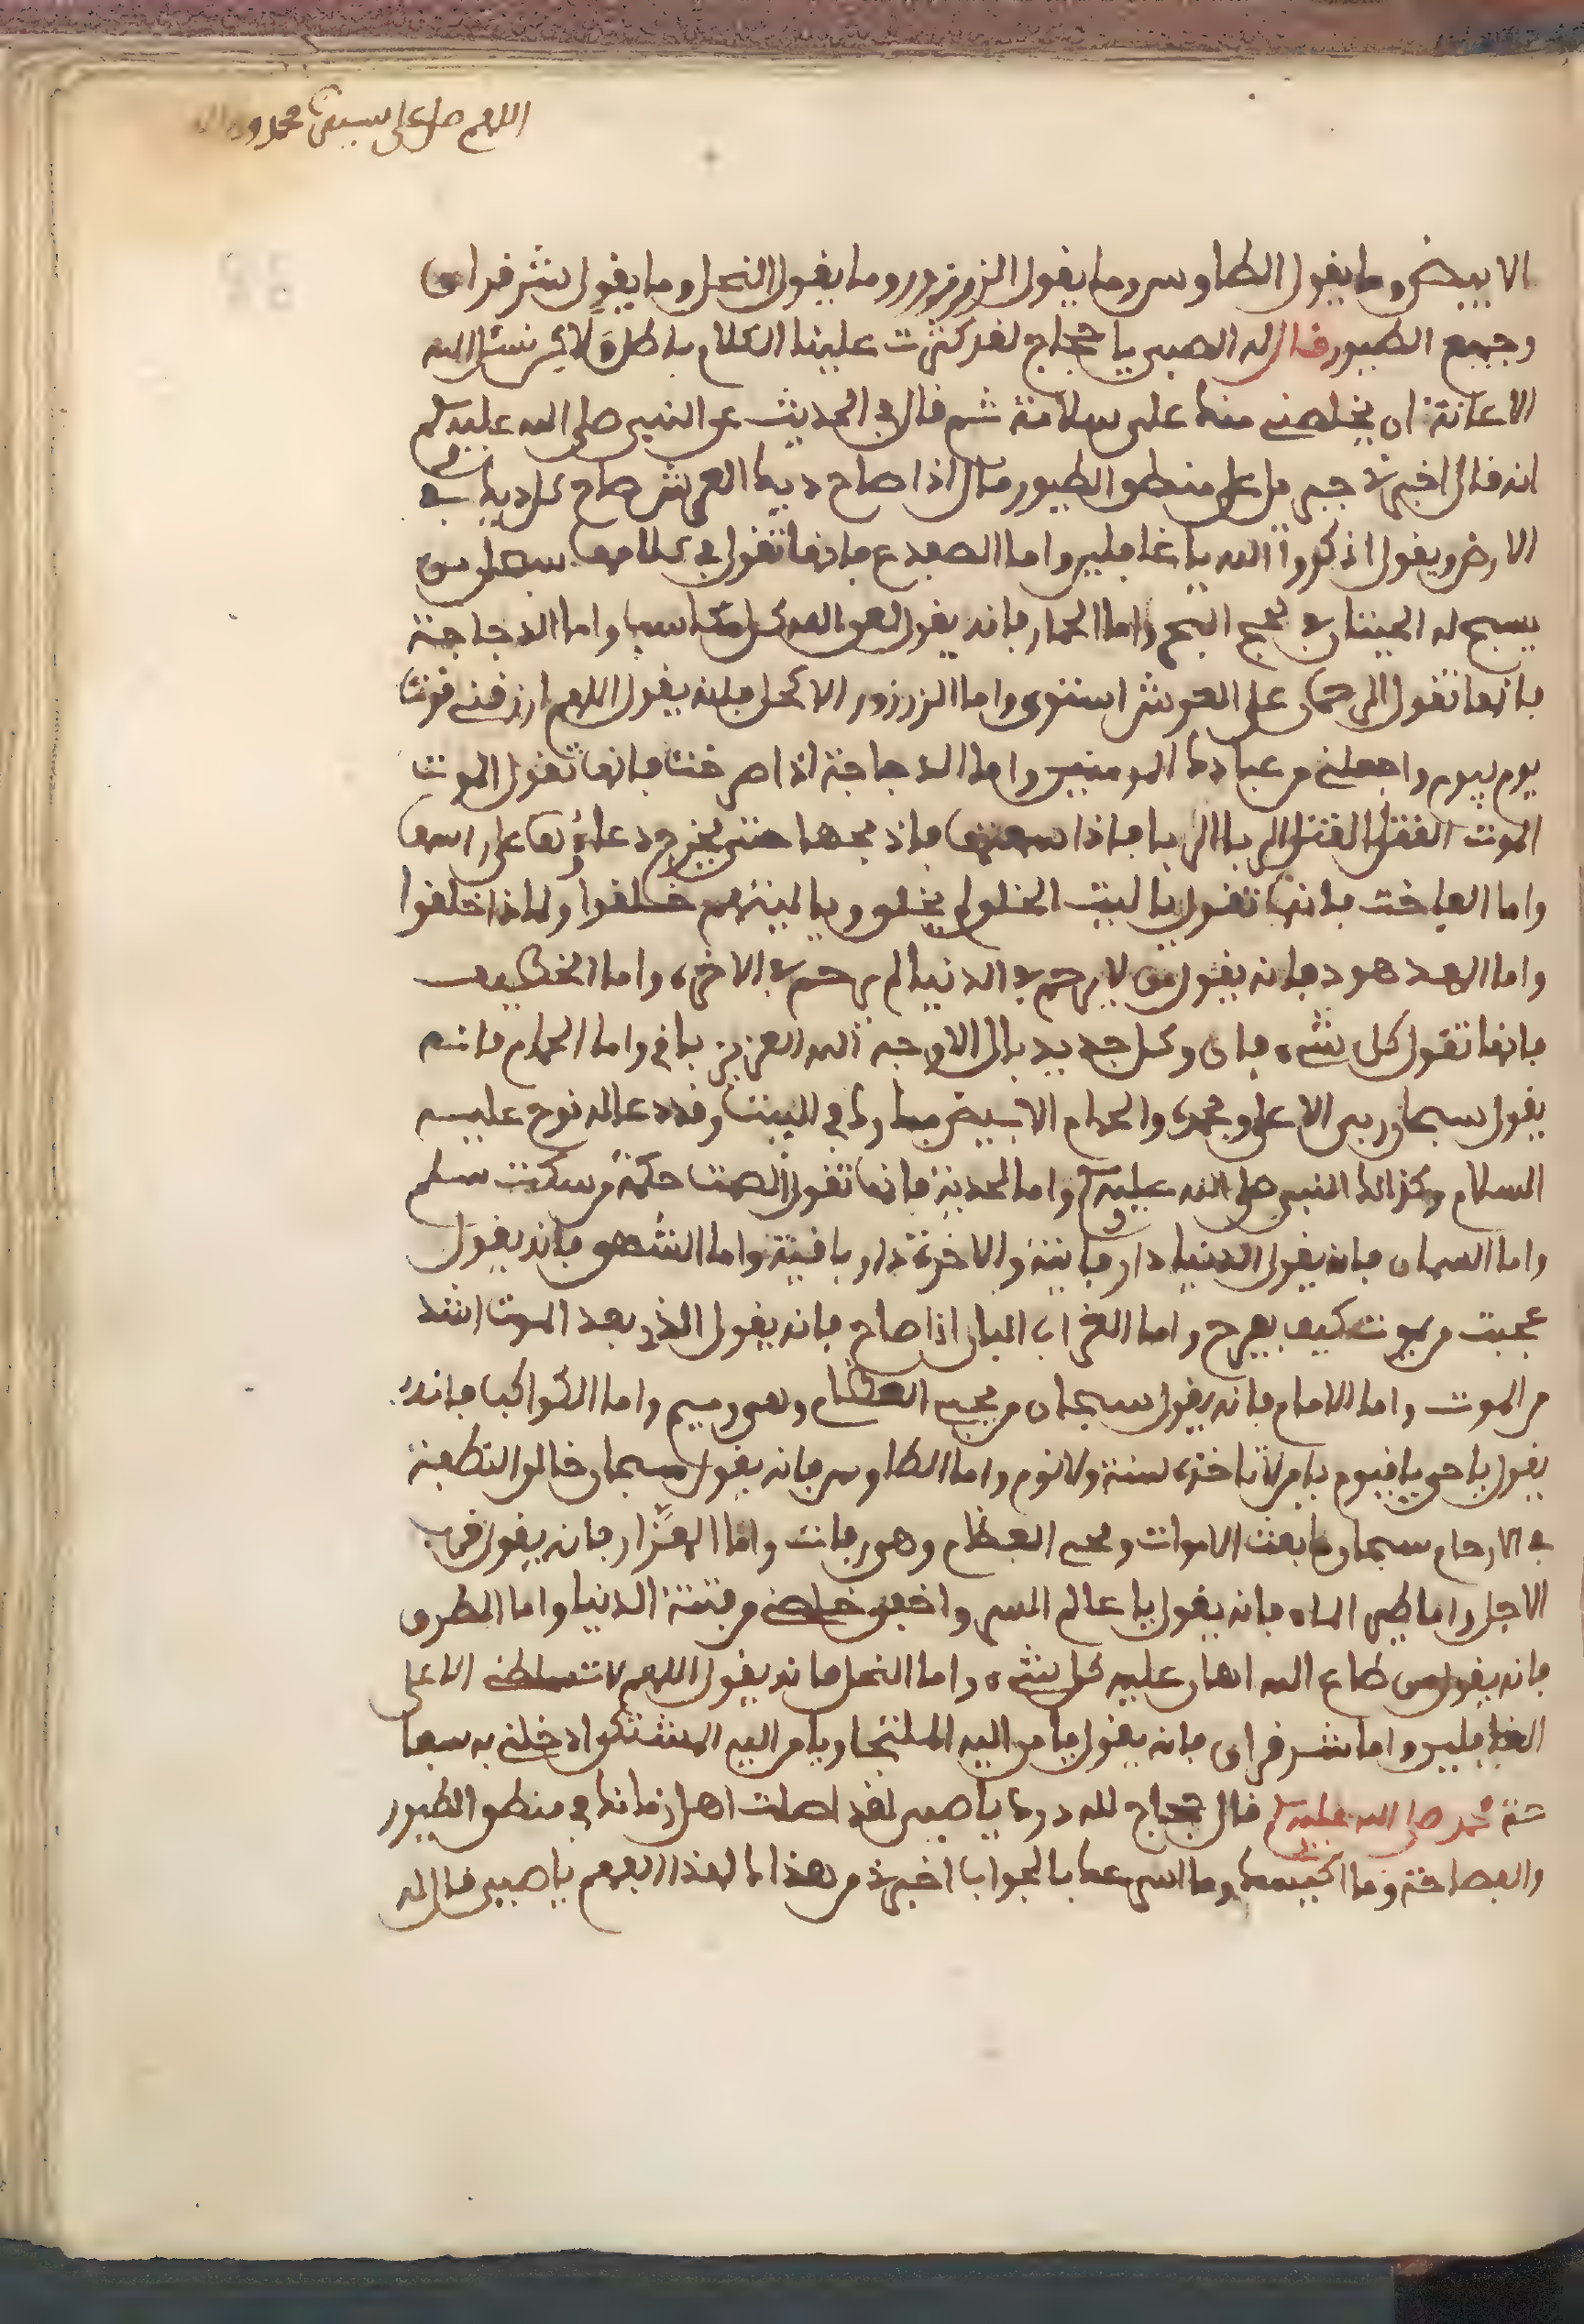 اللهم صل على سيدنا محمد و
الابيض وما يقول الطاوس وما يقول الزرزور وما يقول النحل وما يقول شرقراق
وجميع الطيور فقال له الصبي يا حجاج لقد كثرت علينا الكلام باطلا ولاكن نسئل الله
الاعانة ان يخلصني منك على سلامة ثم قال في الحديث عن النبي صلى الله عليه وسلم
انه قال اخبرني جبريل على منطق الطيور فقال اذا صاح ديك العرش صاح كل ديك في
الارض ويقول اذكروا الله يا غافلين واما الضفدع فانها تقول في كلامها سبحان من
يسبح له الحيتان في لجج البحر واما الحمار فانه يقول لعن الله كل مكاس واما الدجاجة
فانها تقول الرحمان على العرش استوى واما الزرزور الاكحل فانه يقول اللهم ارزقني قوت
يوم بيوم واجعلني من عبادك المومنين واما الدجاجة اذا صرخت فانها تقول الموت
الموت القتل القتل الربا الربا فاذا سمعتها فاذبحها حتى يخرج دعاؤها على راسها
واما الفاخت فانها تقول يا ليت الخلق لم يخلق ويا ليتهم خلقوا ولماذا خلقوا
واما الهدهود فانه يقول من لا يرحم في الدنيا لم يرحم في الاخرة واما الخطيف
فانها تقول كل شيء فان وكل جديد بال الا وجه الله العزيز باق واما الحمام فانه
يقول سبحان ربي الاعلى وبحمده والحمام الابيض مبارك في البيت وقد دعا له نوح عليه
السلام وكذالك النبي صلى الله عليه وسلم واما الحدية فانها تقول الصمت حكمة من سكت سلم
واما السمان فانه يقول الدنيا دار فانية والاخرة دار باقية واما الشهو فانه يقول
عجبت من يموت كيف يفرح واما الغراب البان اذا صاح فانه يقول الذي بعد الموت اشد
من الموت واما الامام فانه يقول سبحان من يحيي العظام وهي رميم واما الكواكب فانه
يقول يا حي يا قيوم يا من لا تاخذه سنة ولا نوم واما الطاوس فانه يقول سبحان خالق النطفة
في الارحام سبحان باعث الاموات ومحيي العظام وهو رفات واما الهزار فانه يقول قرب
الاجل واما طير الماء فانه يقول يا عالم السر واخفى خلصني من فتنة الدنيا واما المطرق
فانه يقول من طاع الله اهان عليه كل شيء واما النحل فانه يقول اللهم لا تسلطني الا على
الغافلين واما شرقراق فانه يقول يا من اليه الملتجا ويا من اليه المشتكى ادخلني به شفا
عة محمد صلى الله عليه وسلم قال حجاج لله درك يا صبي لقد اصلت اهل زماننا في منطق الطيور
والفصاحة وما اكيسك وما اسرعك بالجواب اخبرني من هذا لهذا الفهم يا صبي فقال له